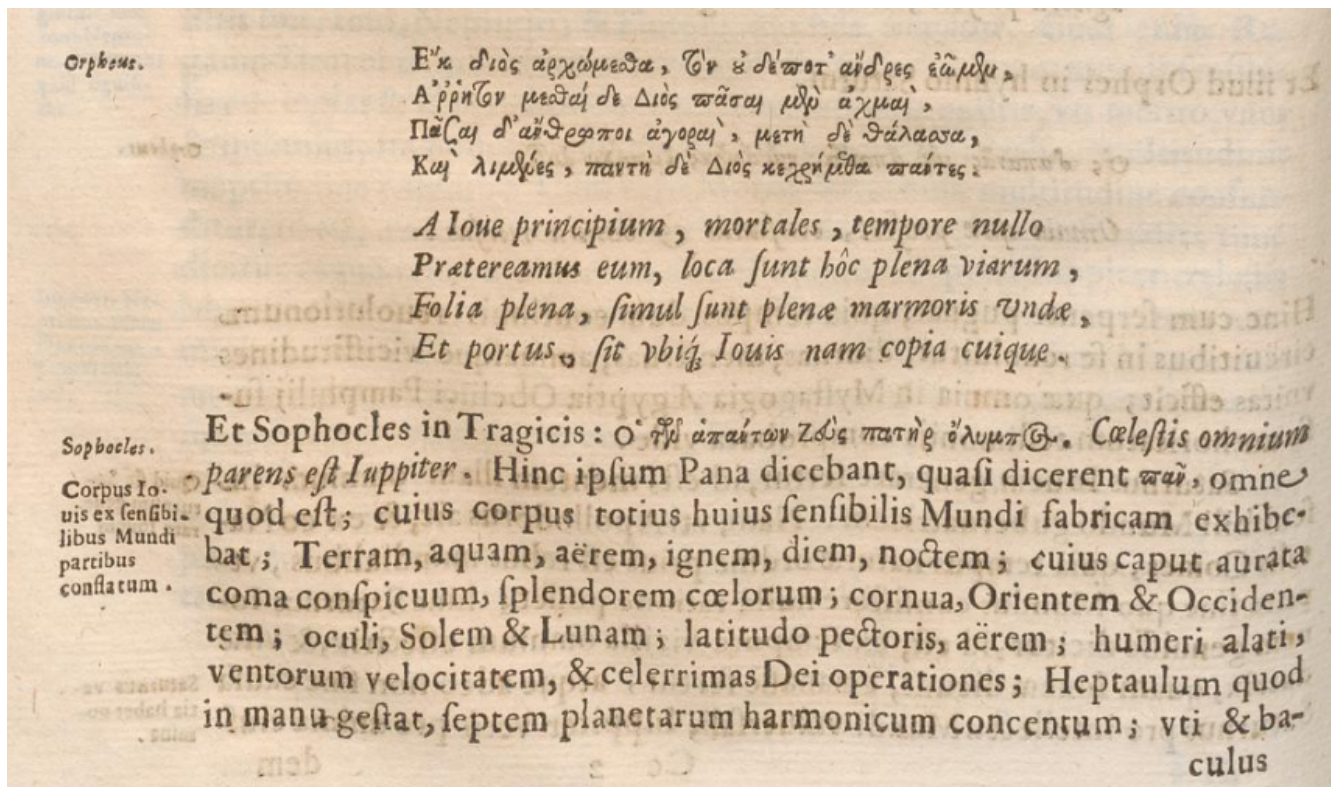 Orpheus.
Εʼκ διὸς ἀρχώμεσθα, τὸν ȣ δέποτʼ ἄνδρες ἐῶμῳ,
Αʼῤῥητον μεϛαὶ δὲ Διὸς πᾶσαι μὲν ἀχμαὶ,
Πᾶσαι δʼ ἄνθρωποι ἀγοραὶ, μετὴ δὲ θάλασσα,
Καὶ λιμένες, παντὴ δὲ Διὸς κεχρήμεθα πάντες.
A Ioue principium, mortales, tempore nullo
Prætereamus eum, loca ſunt hôc plena viarum,
Folia plena, ſimul ſunt plenæ marmoris vndæ,
Et portus, ſit vbiq́; Iouis nam copia cuique.
Sophocles.
Et Sophocles in Tragicis: ὁ τῶν ἁπάντων Ζεὺς πατὴρ ὄλυμπος. Cæleſtis omnium
parens eſt Iuppiter. Hinc ipſum Pana dicebant, quaſi dicerent παῦ, omne
Corpus Io-
uis ex ſenſibi-
libus Mundi
partibus
conflatum.
quod eſt; cuius corpus totius huius ſenſibilis Mundi fabricam exhibe-
bat; Terram, aquam, aërem, ignem, diem, noctem; cuius caput aurata
coma conſpicuum, ſplendorem cœlorum; cornua, Orientem & Occiden-
tem; oculi, Solem & Lunam; latitudo pectoris, aërem; humeri alati,
ventorum velocitatem, & celerrimas Dei operationes; Heptaulum quod
in manu geſtat, ſeptem planetarum harmonicum concentum; vti & ba-
culus